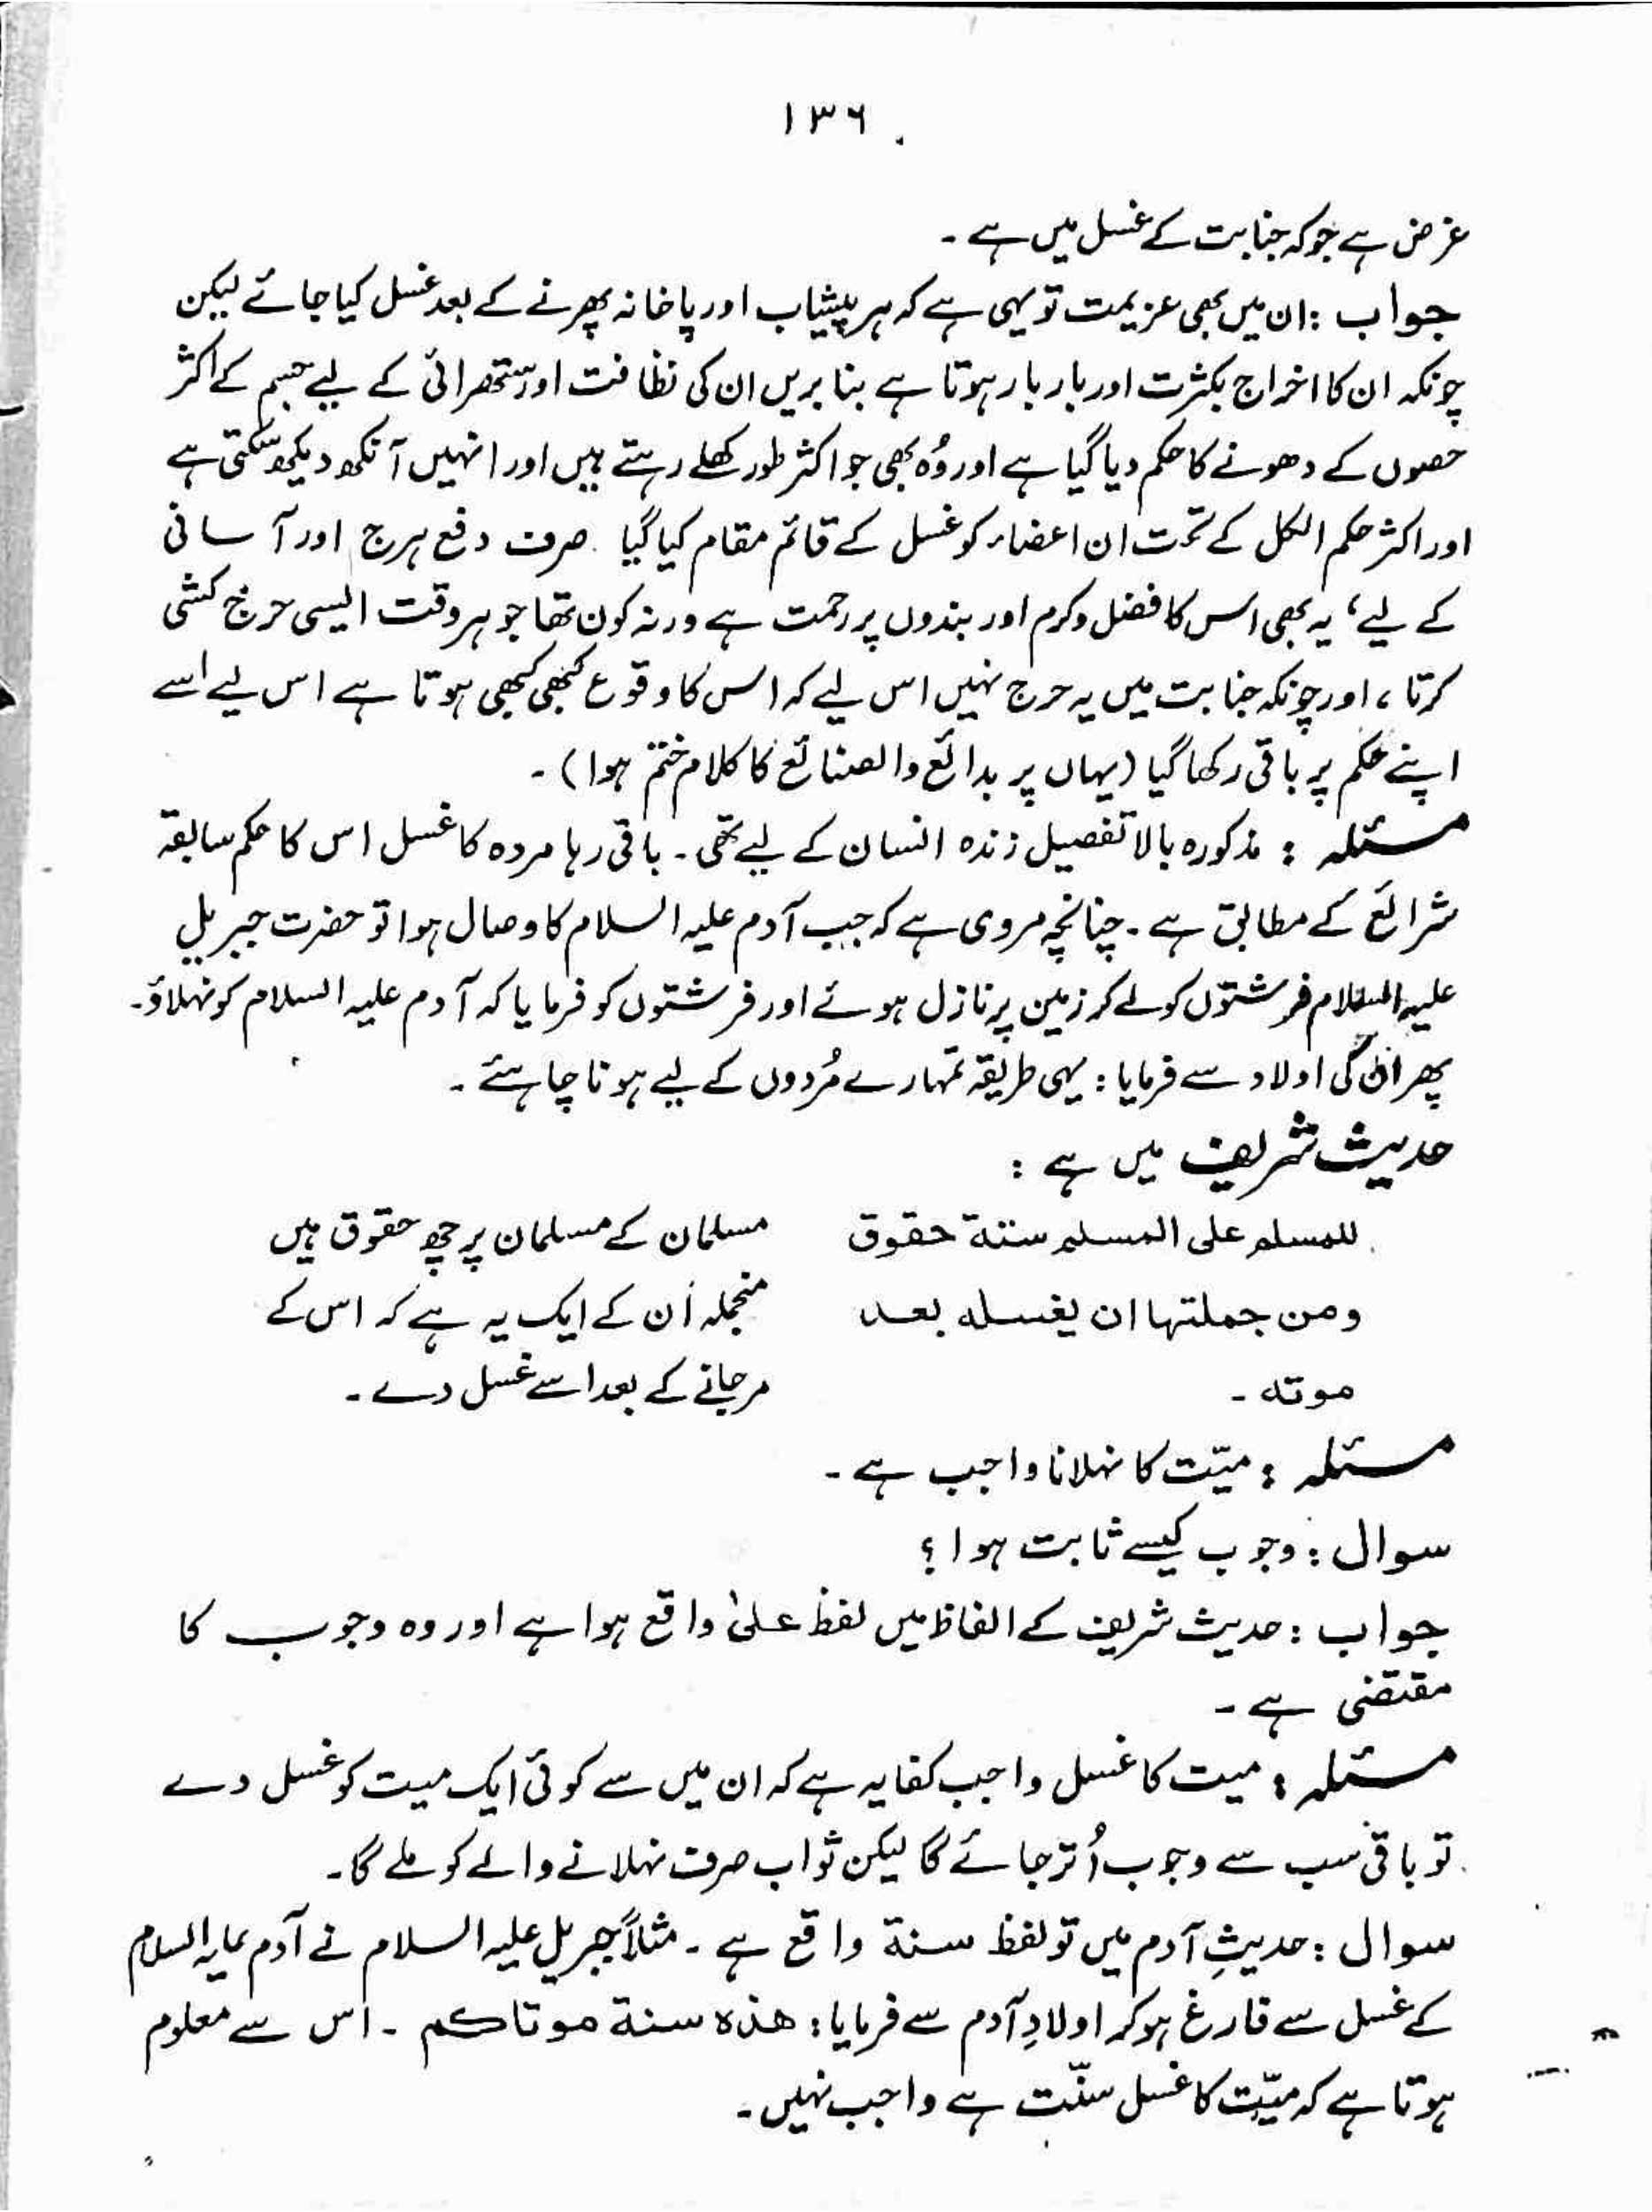 ۱۳۶
غرض ہے جو کہ جنابت کے غسل میں ہے ۔
جواب : ان میں بھی عزیمت تو یہی ہے کہ ہر پیشاب اور پاخانہ پھرنے کے بعد غسل کیا جائے لیکن
چونکہ ان کا اخراج بکثرت اور بار بار ہوتا ہے بنا بریں ان کی نظافت اور ستھرائی کے لیے جسم کے اکثر
حصوں کے دھونے کا حکم دیا گیا ہے اور وُہ بھی جو اکثر طور کھلے رہتے ہیں اور انہیں آنکھ دیکھ سکتی ہے
اور اکثر حکم الکل کے تحت ان اعضاء کو غسل کے قائم مقام کیا گیا ۔ صرف دفع ہرج اور آسانی
کے لیے ، یہ بھی اس کا فضل و کرم اور بندوں پر رحمت ہے ورنہ کون تھا جو ہر وقت ایسی حرج کشی
کرتا ، اور چونکہ جنابت میں یہ حرج نہیں اس لیے کہ اس کا وقوع کبھی کبھی ہوتا ہے اس لیے اسے
اپنے حکم پر باقی رکھا گیا (یہاں پر بدائع والصنائع کا کلام ختم ہوا) ۔
مسئلہ : مذکورہ بالا تفصیل زندہ انسان کے لیے تھی ۔ باقی رہا مردہ کا غسل اس کا حکم سابقہ
شرائع کے مطابق ہے ۔ چنانچہ مروی ہے کہ جب آدم علیہ السلام کا وصال ہوا تو حضرت جبریل
علیہ السلام فرشتوں کو لے کر زمین پر نازل ہوئے اور فرشتوں کو فرمایا کہ آدم علیہ السلام کو نہلاؤ ۔
پھر ان کی اولاد سے فرمایا : یہی طریقہ تمہارے مُردوں کے لیے ہونا چاہئے ۔
حدیث شریف میں ہے :
للمسلم على المسلم ستة حقوق مسلمان کے مسلمان پر چھ حقوق ہیں
ومن جملتها ان يغسله بعد منجملہ اُن کے ایک یہ ہے کہ اس کے
موته ۔ مرجانے کے بعد اسے غسل دے ۔
مسئلہ : میّت کا نہلانا واجب ہے ۔
سوال : وجوب کیسے ثابت ہوا ؟
جواب : حدیث شریف کے الفاظ میں لفظ علیٰ واقع ہوا ہے اور وہ وجوب کا
مقتضی ہے ۔
مسئلہ : میت کا غسل واجب کفایہ ہے کہ ان میں سے کوئی ایک میت کو غسل دے
تو باقی سب سے وجوب اُتر جائے گا لیکن ثواب صرف نہلانے والے کو ملے گا ۔
سوال : حدیثِ آدم میں تو لفظ سنة واقع ہے ۔ مثلاً جبریل علیہ السلام نے آدم علیہ السلام
کے غسل سے فارغ ہو کر اولادِ آدم سے فرمایا : هذه سنة موتاكم ۔ اس سے معلوم
ہوتا ہے کہ میّت کا غسل سنّت ہے واجب نہیں ۔